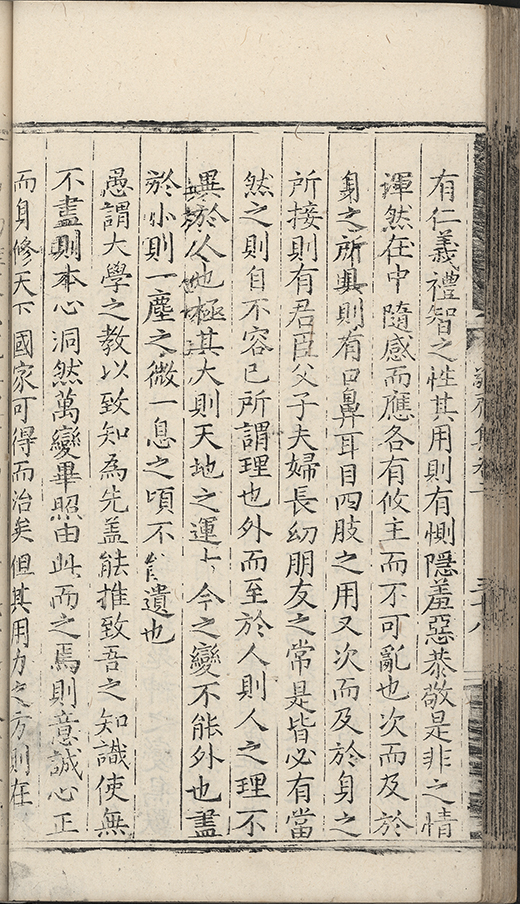 有仁義禮智之性其用則有惻隱羞惡恭敬是非之情
渾然在中隨感而應各有攸主而不可亂也次而及於
身之所具則有口鼻耳目四肢之用又次而及於身之
所接則有君臣父子夫婦長幼朋友之常是皆必有當
然之則自不容已所謂理也外而至於人則人之理不
異於人也極其大則天地之運古今之變不能外也盡
於小則一塵之微一息之頃不能遺也
愚謂大學之教以致知為先盖能推致吾之知識使無
不盡則本心洞然萬變畢照由此而之焉則意誠心正
而身修天下國家可得而治矣但其用力之方則在